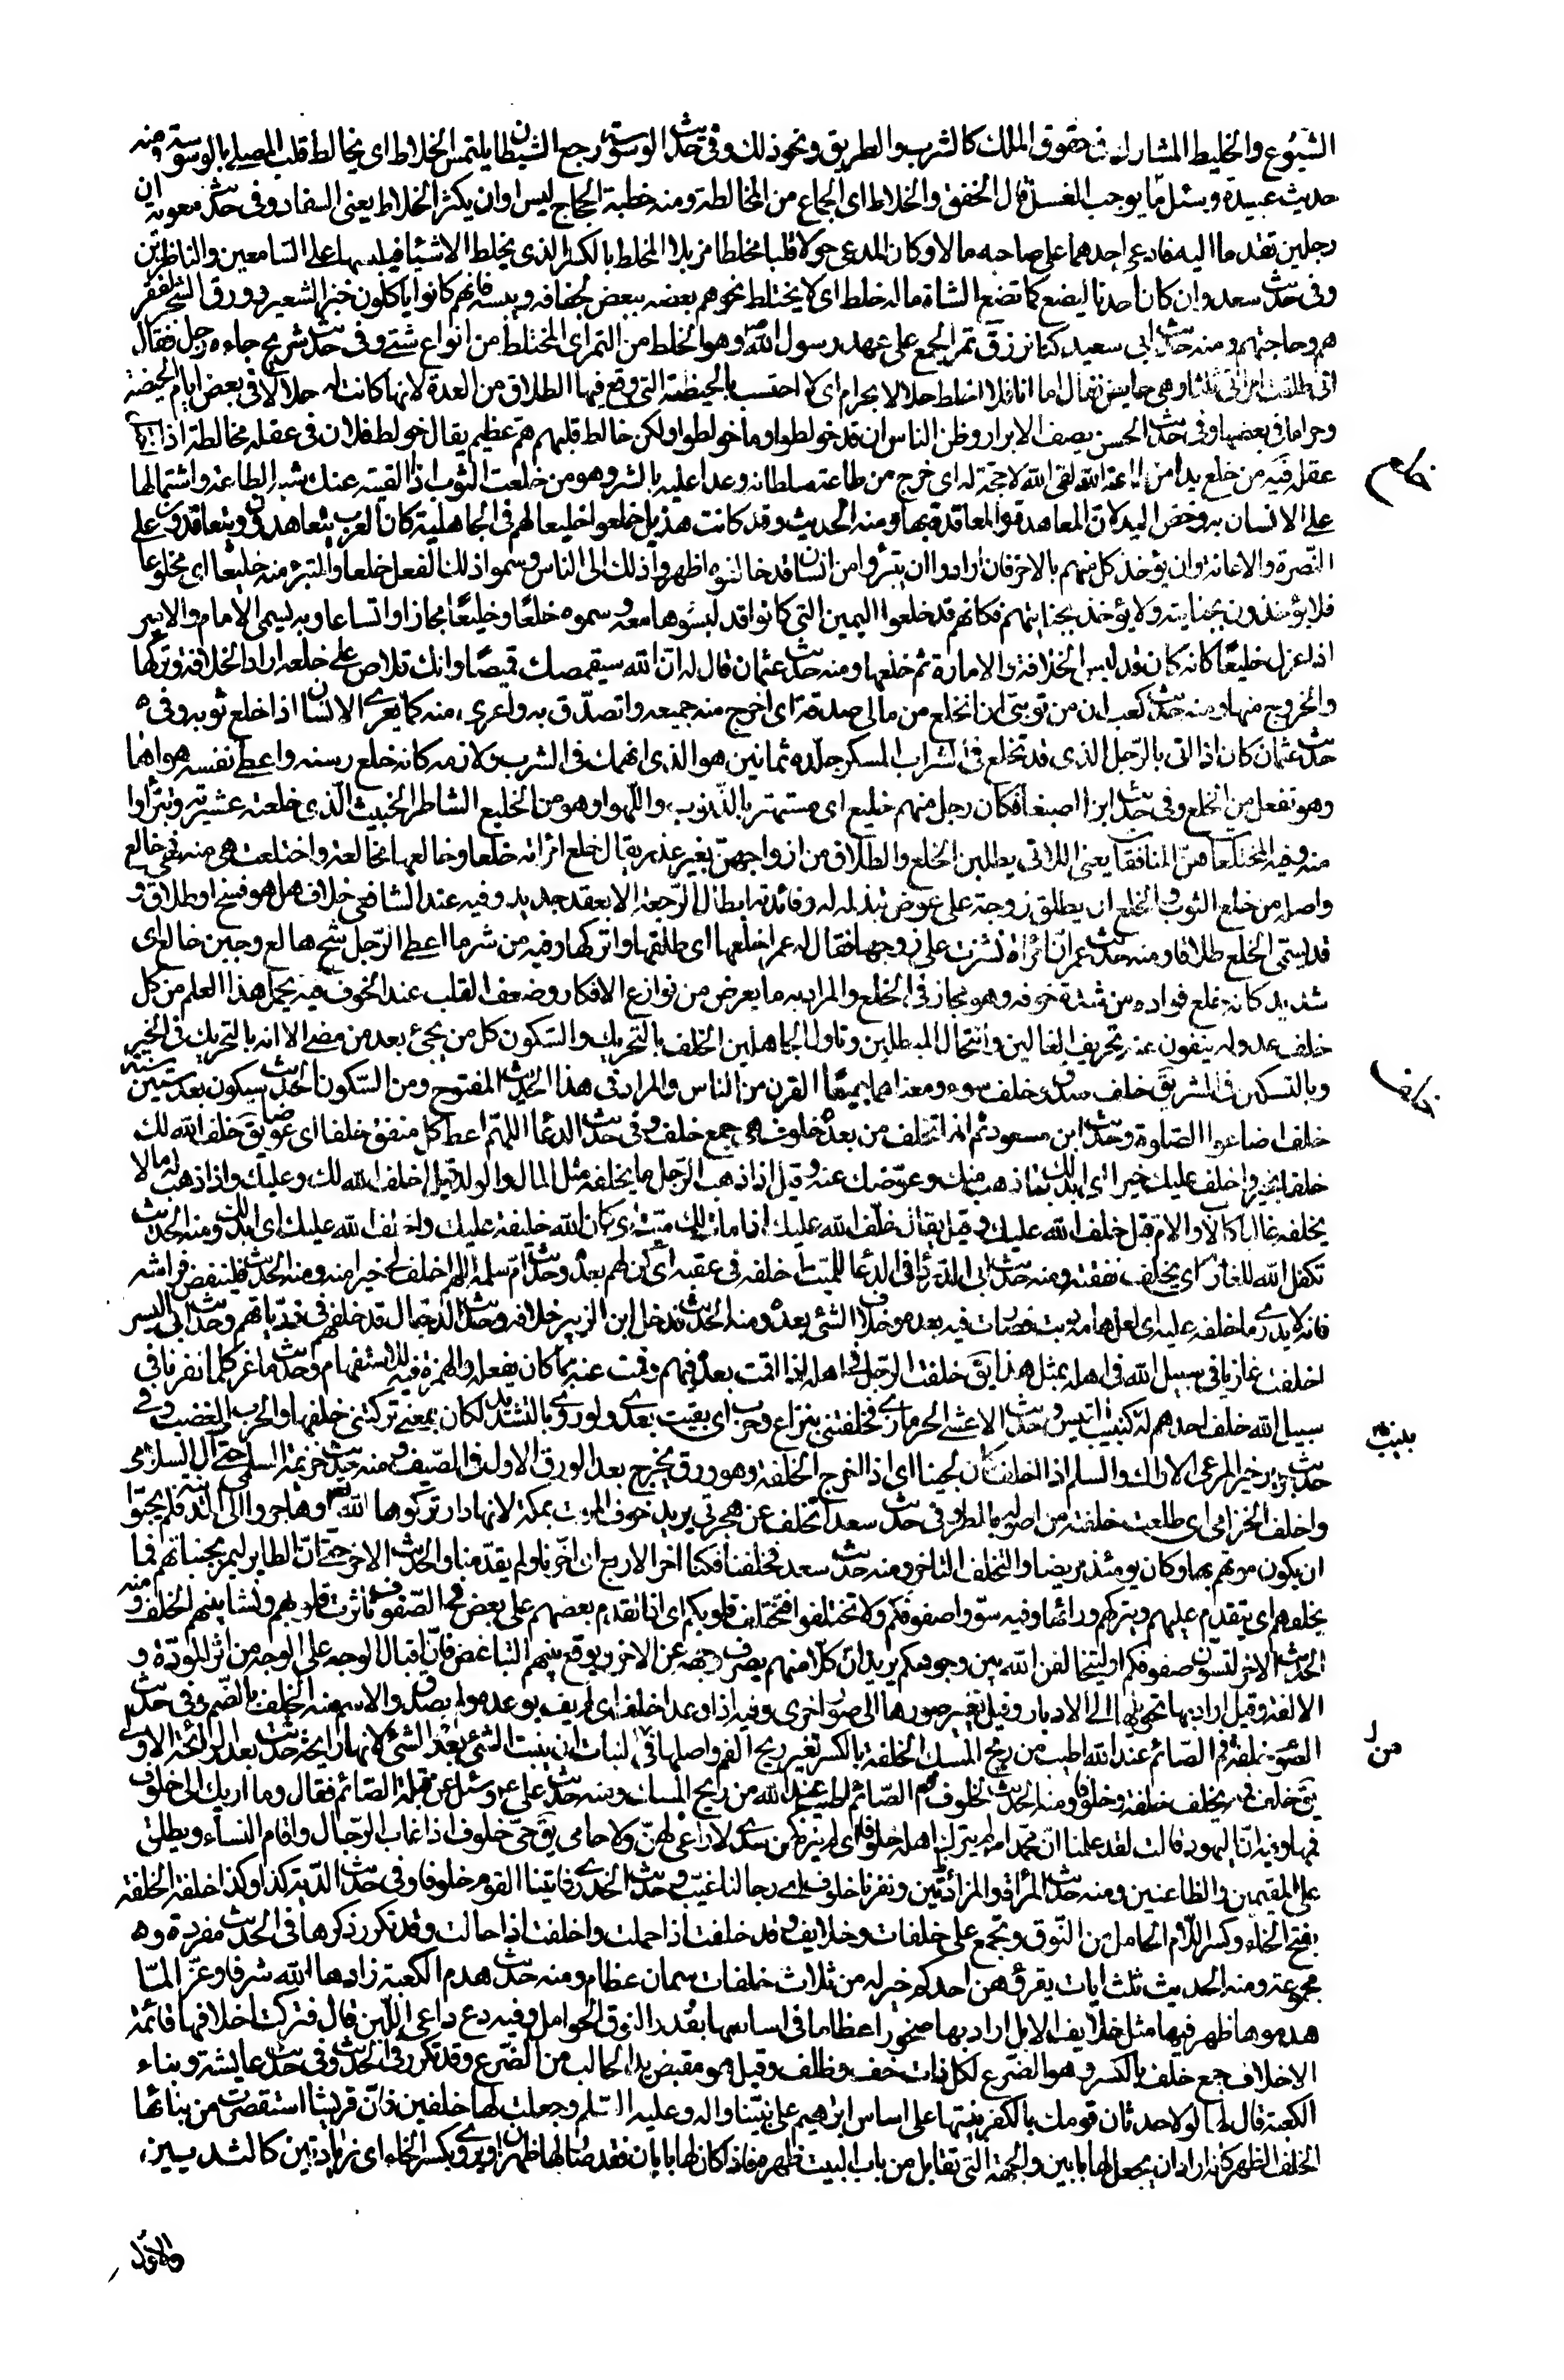 الشيوع والخليط المشارك في حقوق الملك كالشرب والطريق ونحو ذلك وفي حديث الوسوسة رجع الشيطان يلتمس الخلاط اى يخالط قلب المصلي بالوسوسة ومنه
حديث عبيدة وسئل ما يوجب الغسل قال الخفق والخلاط اى الجماع من المخالطة ومنه خطبة الحجاج ليس اوان يكثر الخلاط يعني السفاد وفي حديث معوية ان
رجلين تقدما اليه فادعى احدهما على صاحبه مالا وكان المدعى حولا قلبا مخلطا مزيلا المخلط بالكسر الذي يخلط الاشياء فيلبسها على السامعين والناظرين
وفي حديث سعد وان كان احدنا ليضع كما تضع الشاة ماله خلط اى لا يختلط نجوهم بعضه ببعض لجفافه ويبسه فانهم كانوا ياكلون خبز الشعير وورق الشجر لفقر
هم وحاجتهم ومنه حديث ابي سعيد كنا نرزق تمر الجمع على عهد رسول الله وهو الخلط من التمر اى المختلط من انواع شتى وفي حديث شريح جاءه رجل فقال
اني طلقت امراتي ثلثا وهي حايض فقال اما انا فلا اخلط حلالا بحرام اى لا احتسب بالحيضة التي وقع فيها الطلاق من العدة لانها كانت له حلالا في بعض ايام الحيضة
وحراما في بعضها وفي حديث الحسن يصف الابرار وظن الناس ان قد خولطوا وما خولطوا ولكن خالط قلبهم هم عظيم يقال خولط فلان في عقله مخالطة اذا اختل
خلع
عقله فيه من خلع يدا من طاعة الله لقى الله لا حجة له اى خرج من طاعة سلطانه وعدا عليه بالشر وهو من خلعت الثوب اذا القيته عنك شبه الطاعة واشتمالها
على الانسان به وخص اليد لان المعاهدة والمعاقدة بها ومنه الحديث وقد كانت هذيل خلعوا خليعا لهم في الجاهلية كان العرب يتعاهدون ويتعاقدون على
النصرة والاعانة وان يؤخذ كل منهم بالاخر فان ارادوا ان يتبرؤا من انسان قد خالفوه اظهروا ذلك الى الناس وسموا ذلك الفعل خلعا والمتبرء منه خليعا اى مخلوعا
فلا يؤخذون بجنايته ولا يؤخذ بجنايتهم فكانهم قد خلعوا اليمين التي كانوا قد لبسوها معه وسموه خلعا وخليعا مجازا واتساعا وبه يسمى الامام والامير
اذا عزل خليعا كانه كان قد لبس الخلافة والامارة ثم خلعها ومنه حديث عثمان قال له ان الله سيقمصك قميصا وانك تلاص على خلعه اراد الخلافة وتركها
والخروج منها ومنه حديث كعب ان من توبتي ان انخلع من مالي صدقة اى اخرج منه جميعه واتصدق به واعرى منه كما يعرى الانسان اذا خلع ثوبه وفي
حديث عثمان كان اذا اتى بالرجل الذي قد تخلع في الشراب المسكر جلده ثمانين هو الذي انهمك في الشرب ولازمه كانه خلع رسنه واعطى نفسه هواها
وهو تفعل من الخلع وفي حديث ابن الصبغاء فكان رجل منهم خليع اى مستهتر بالذنوب واللهو او هو من الخليع الشاطر الخبيث الذي خلعته عشيرته وتبرأوا
منه وفيه المختلعات هن المنافقات يعني اللاتي يطلبن الخلع والطلاق من ازواجهن بغير عذر يقال خلع امرأته خلعا وخالعها مخالعة واختلعت هي منه فهي خالع
واصله من خلع الثوب والخلع ان يطلق زوجة على عوض تبذله له وفائدته ابطال الرجعة الا بعقد جديد وفيه عند الشافعي خلاف هل هو فسخ او طلاق و
قد يسمى الخلع طلاقا ومنه حديث عمر ان امرأة نشزت على زوجها فقال له عمر اخلعها اى طلقها واتركها وفيه من شر ما اعطى الرجل شح هالع وجبن خالع اى
شديد كانه يخلع فواده من شدة خوفه وهو مجاز في الخلع والمراد به ما يعرض من نوازع الافكار وضعف القلب عند الخوف فيه يحمل هذا العلم من كل
خلف
خلف عدوله ينفون عنه تحريف الغالين وانتحال المبطلين وتاول الجاهلين الخلف بالتحريك والسكون كل من يجئ بعد من مضى الا انه بالتحريك في الخير
وبالتسكين في الشر يق خلف صدق وخلف سوء ومعناهما جميعا القرن من الناس والمراد في هذا الحديث المفتوح ومن السكون الحديث سيكون بعد ستين سنة
خلف اضاعوا الصلوة وحديث ابن مسعود ثم انها تخلف من بعده خلوف هي جمع خلف وفي حديث الدعا اللهم اعط كل منفق خلفا اى عوضا يق خلف الله لك
خلفا بخير واخلف عليك خيرا اى ابدلك بما ذهب منك وعوضك عنه وقيل اذا ذهب للرجل ما يخلفه مثل المال والولد قيل اخلف الله لك وعليك واذا ذهب له ما لا
يخلفه غالبا كالاب والام قيل خلف الله عليك وقيل يقال خلف الله عليك اذا مات لك ميت اى كان الله خليفة عليك واخلف الله عليك اى ابدلك ومنه الحديث
تكفل الله للغازي ان يخلف نفقته ومنه حديث ابي الدرداء في الدعا للميت اخلفه في عقبه اى كن لهم بعده وحديث ام سلمة اللهم اخلف لي خيرا منه ومنه الحديث فلينفض فراشه
فانه لا يدري ما خلفه عليه اى لعل هامة دبت فصارت فيه بعده وخلاف الشئ بعده ومنه الحديث فدخل ابن الزبير خلافه وحديث الدجال قد خلفهم في ذرياتهم وحديث ابي اليسر
اخلفت غازيا في سبيل الله في اهله بمثل هذا يق خلفت الرجل في اهله اذا اقمت بعده فيهم وقمت عنه بما كان يفعله والهمزة فيه للاستفهام وحديث ماعز كلما نفرنا في
سبيل الله خلف احدهم له نبيب كنبيب التيس وحديث الاعشى الحرمازي فخلفتني بنزاع وحرب اى بقيت بعدي ولو روى بالتشديد لكان بمعنى تركتني خلفها والحرب الغضب وفي
حديث جرير خير المرعى الاراك والسلم اذا اخلف كان لجينا اى اذا اخرج الخلفة وهو ورق يخرج بعد الورق الاول في الصيف ومنه حديث خزيمة السلمي حتى آل السلامى
واخلف الخزامى اى طلعت خلفته من اصوله بالمطر وفي حديث سعد اتخلف عن هجرتي يريد خوف الموت بمكة لانها دار تركوها لله وهاجروا الى المدينة فلم يحبوا
ان يكون موتهم بها وكان يومئذ مريضا والتخلف التاخر ومنه حديث سعد فخلفنا فكنا اخر الاربع اى اخرنا ولم يقدمنا والحديث الاخر حتى ان الطاير ليمر بجنباتهم فما
يخلفهم اى يتقدم عليهم ويتركهم ورائها وفيه سووا صفوفكم ولا تختلفوا فتختلف قلوبكم اى اذا تقدم بعضهم على بعض في الصفوف تاثرت قلوبهم ونشا بينهم الخلف ومنه
الحديث الاخر لتسون صفوفكم او ليخالفن الله بين وجوهكم يريد ان كلا منهم يصرف وجهه عن الاخر ويوقع بينهم التباغض فان اقبال الوجه على الوجه من اثر المودة و
الالفة وقيل اراد بها تحويلها الى الادبار وقيل تغيير صورها الى صور اخرى وفيه اذا وعد اخلف اى لم يف بوعده ولم يصدق والاسم منه الخلف بالضم وفي حديث
الصوم خلفة فم الصائم عند الله اطيب من ريح المسك الخلفة بالكسر تغير ريح الفم واصلها في النبات ان ينبت الشئ بعد الشئ لانها رايحة حدثت بعد الرائحة الاولى
يق خلف فمه يخلف خلفة وخلوفا ومنه الحديث لخلوف فم الصائم اطيب عند الله من ريح المسك ومنه حديث علي ع وسئل عن قبلة الصائم فقال وما اربك الى خلوف
فمها وفيه ان اليهود قالت لقد علمنا ان محمدا لم يترك اهله خلوفا اى لم يتركهن سدى لا راعى لهن ولا حامى يق حى خلوف اذا غاب الرجال واقام النساء ويطلق
على المقيمين والظاعنين ومنه حديث المرأة والمزادتين ونفرنا خلوف اى رجالنا غيب وحديث الخدري فاتينا القوم خلوفا وفي حديث الدية كذا وكذا خلفة الخلفة
بفتح الخاء وكسر اللام الحامل من النوق وتجمع على خلفات وخلايف وقد خلفت اذا حملت واخلفت اذا حالت وقد تكرر ذكرها في الحديث مفردة و
مجموعة ومنه الحديث ثلث ايات يقرؤهن احدكم خير له من ثلاث خلفات سمان عظام ومنه حديث هدم الكعبة زادها الله شرفا وعزا لما
هدموها ظهر فيها مثل خلايف الابل اراد بها صخورا عظاما في اساسها بقدر النوق الحوامل وفيه دع داعى اللبن قال فتركت اخلافها قائمة
الاخلاف جمع خلف بالكسر وهو الضرع لكل ذات خف وظلف وقيل هو مقبض يد الحالب من الضرع وقد تكرر في الحديث وفي حديث عايشة وبناء
الكعبة قال لها لولا حدثان قومك بالكفر بنيتها على اساس ابرهيم على نبينا واله وعليه السلم وجعلت لها خلفين فان قريشا استقصرت من بنائها
الخلف الظهر كانه اراد ان يجعل لها بابين والجهة التي تقابل من باب البيت ظهره فاذا كان لها بابان فقد صار لها ظهران ويروى بكسر الخاء اى زيادتين كالثديين
والاول